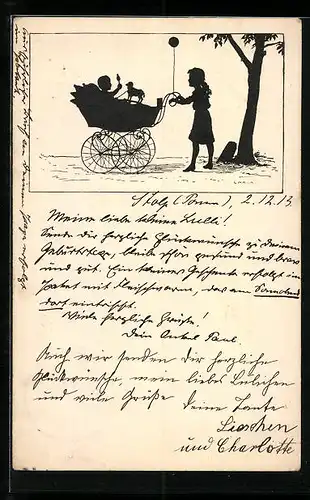 Stolp (Pom.), 2. 12. 13
Meine liebe kleine Lulli!
Sende dir herzliche Glückwünsche zu deinem
Geburtstage, bleibe schön gesund und brav
und gut. Ein kleines Geschenk erfolgt im
Paket mit Fleischwaren, das am Sonnabend
dort eintrifft.
Viele herzliche Grüße!
Dein Onkel Paul.
Auch wir senden dir herzliche
Glückwünsche, mein liebes Lübchen
und viele Grüße
deine Tante
Lieschen
und Charlotte